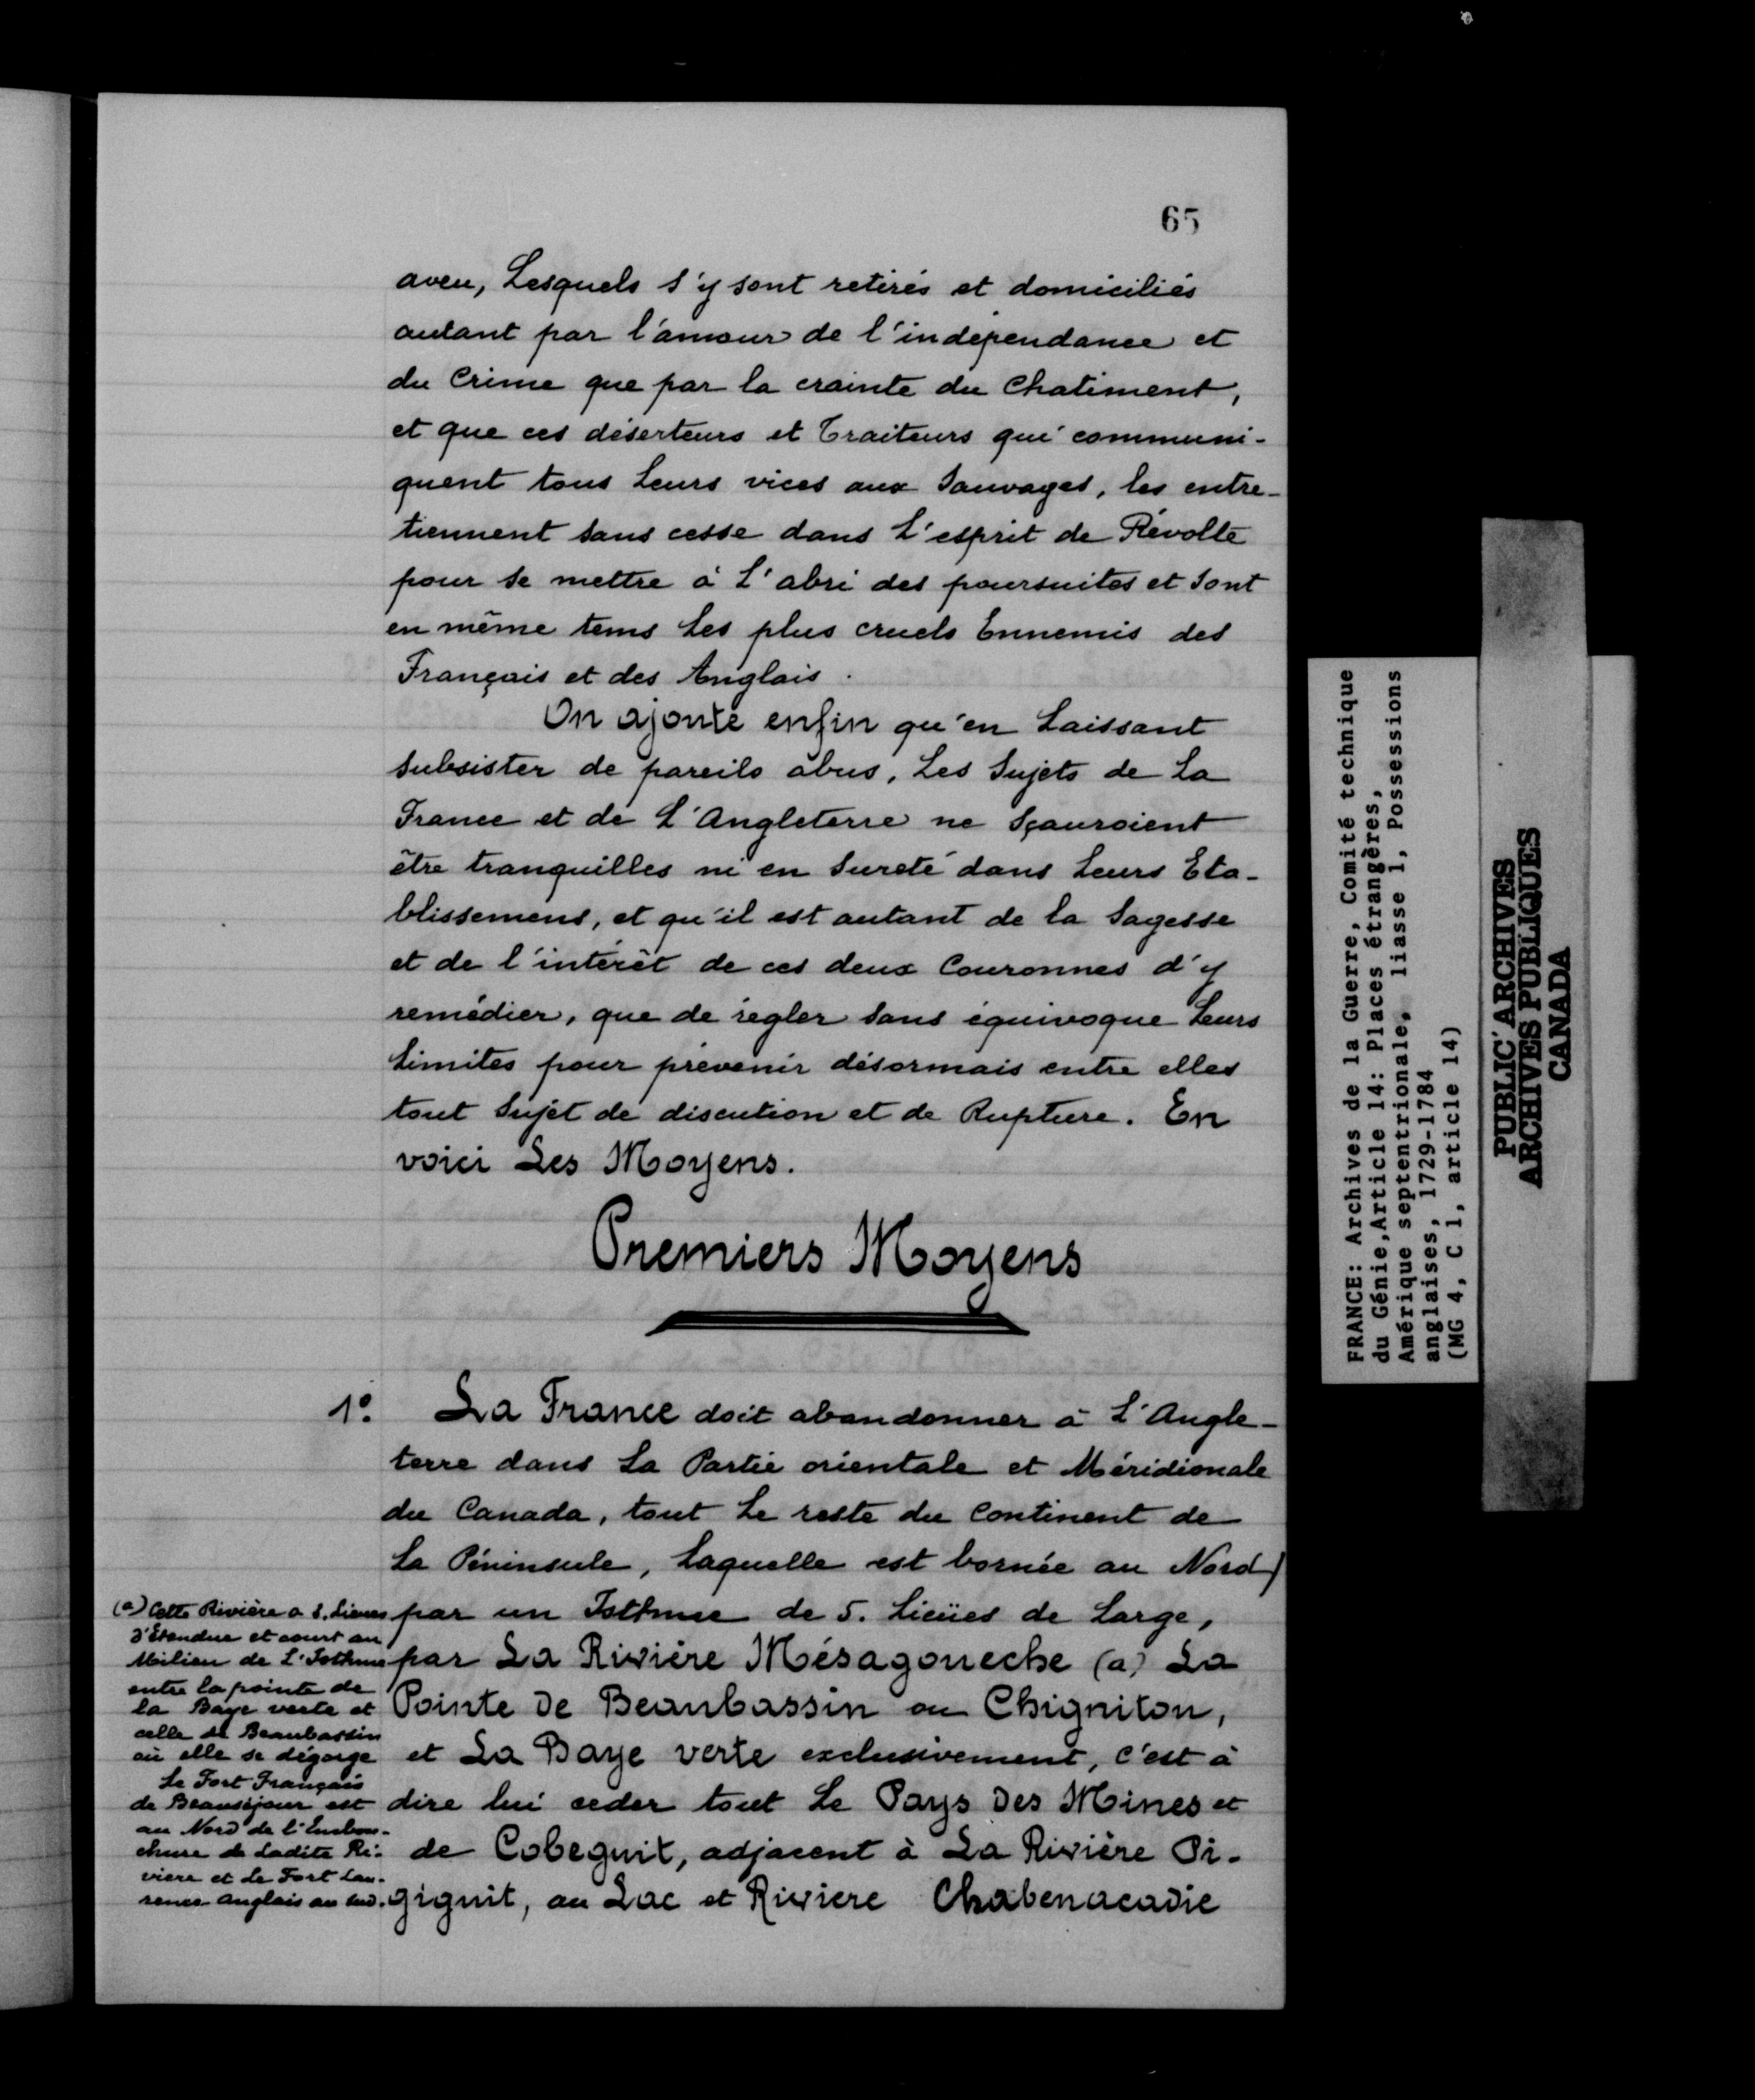 65
aveu, Lesquels s'y sont retirés et domiciliés
autant par l'amour de l'indépendance et
du Crime que par la crainte du Chatiment,
et que ces déserteurs et Traiteurs qui communi-
quent tous Leurs vices aux Sauvages, les entre-
tiennent sans cesse dans L'esprit de Révolte
pour se mettre à L'abri des poursuites et sont
en même tems Les plus cruels Ennemis des
Français et des Anglais.
On ajoute enfin qu'en Laissant
subsister de pareils abus, Les Sujets de La
France et de L'Angleterre ne sçauroient
être tranquilles ni en Sureté dans Leurs Eta-
blissemens, et qu'il est autant de la Sagesse
et de l'intérêt de ces deux Couronnes d'y
remédier, que de régler sans équivoque Leurs
Limites pour prévenir désormais entre elles
tout Sujet de discution et de Rupture. En
voici Les Moyens.
Premiers Moyens
1º. La France doit abandonner à L'Angle-
terre dans La Partie orientale et Méridionale
du Canada, tout Le reste du Continent de
La Péninsule, Laquelle est bornée au Nord
par un Isthme de 5. Lieües de Large,
par La Rivière Mésagoueche (a) La
Pointe De Beaubassin ou Chigniton,
et La Baye verte exclusivement, c'est à
dire lui ceder tout Le Pays Des Mines et
de Cobeguit, adjacent à La Rivière Pi-
giguit, au Lac et Riviere Chabenacadie
(a) Cette Rivière a 8. Lieues
d'Etendue et court au
Milieu de L'Isthme
entre la pointe de
la Baye verte et
celle de Beaubassin
où elle se dégorge
Le Fort Français
de Beauséjour est
au Nord de l'Embou-
chure de Ladite Ri-
viere et Le Fort Lau-
rence Anglais au Sud.
FRANCE: Archives de la Guerre, Comité technique
du Génie, Article 14: Places étrangères,
Amérique septentrionale, liasse 1, Possessions
anglaises, 1729-1784
(MG 4, C 1, article 14)
PUBLIC ARCHIVES
ARCHIVES PUBLIQUES
CANADA